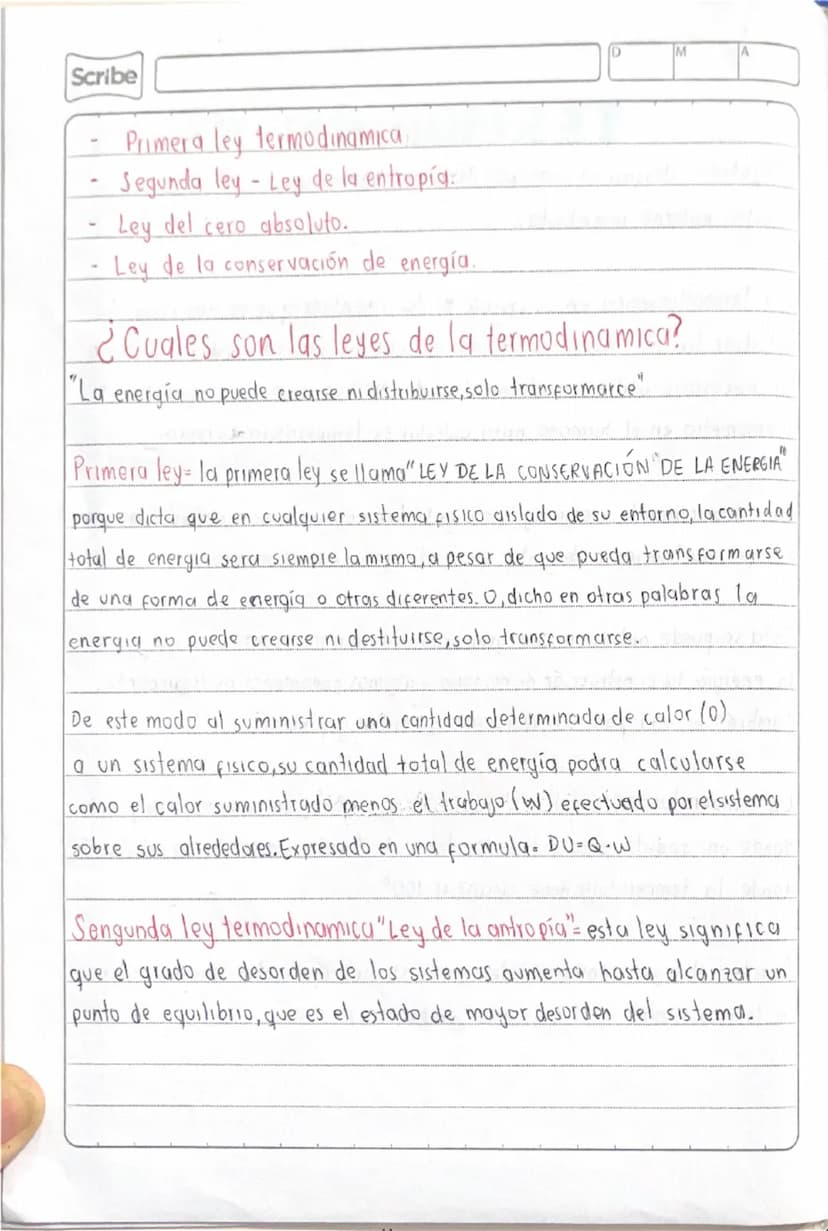 Scribe
D M A
- Primera ley termodinamica.
- Segunda ley - Ley de la entropía.
- Ley del cero absoluto.
- Ley de la conservación de energía.
¿Cuales son las leyes de la termodinamica?
"La energía no puede crearse ni distribuirse, solo transformarce"
Primera ley= la primera ley se llama "LEY DE LA CONSERVACIÓN "DE LA ENERGIA"
porque dicta que en cualquier sistema fisico aislado de su entorno, la cantidad
total de energia sera siempre la misma, a pesar de que pueda transformarse
de una forma de energía o otras diferentes. O, dicho en otras palabras la
energia no puede crearse ni destituirse, solo transformarse.
De este modo al suministrar una cantidad determinada de calor (O)
a un sistema fisico, su cantidad total de energía podra calcularse
como el calor suministrado menos el trabajo (W) efectuado por el sistema
sobre sus alrededores. Expresado en una formula= DU=Q-W
Sengunda ley termodinamica "Ley de la antropía"= esta ley significa
que el grado de desorden de los sistemas aumenta hasta alcanzar un
punto de equilibrio, que es el estado de mayor desorden del sistema.